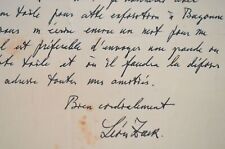 toile pour cette exposition à Bayonne
encore un mot pour m
est préférable d'envoyer une grande ou
toile et où il faudra la déposer
adresse toutes mes amitiés.
Bien cordialement
Léon Zack